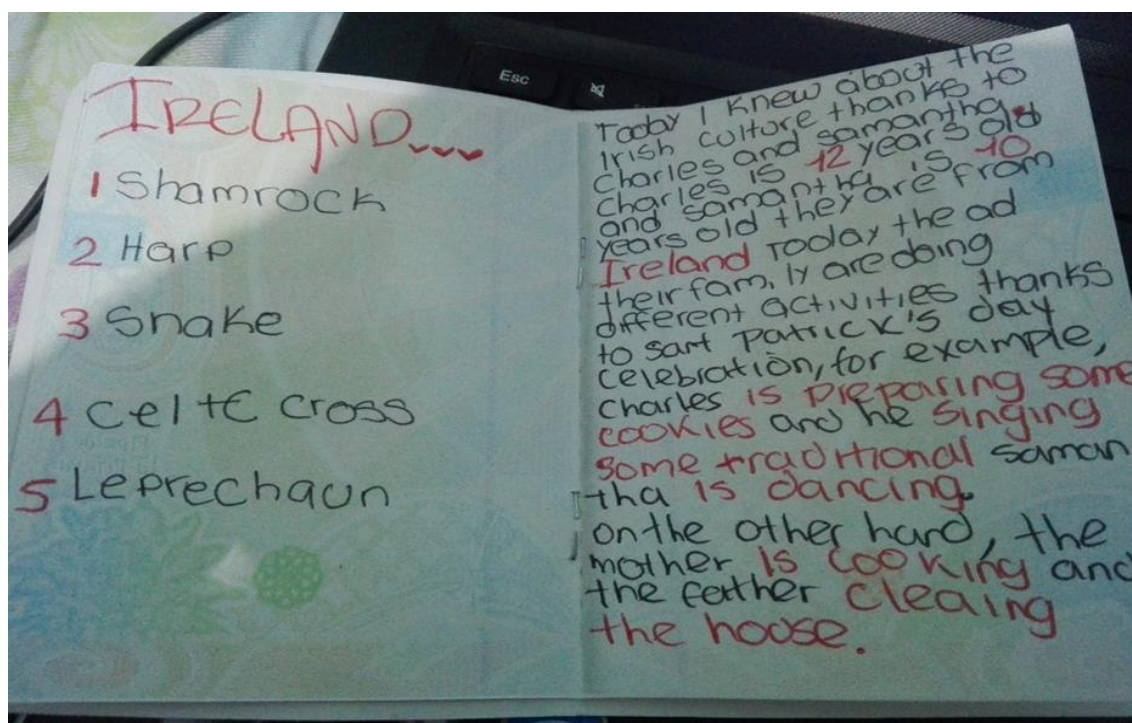 Esc
IRELAND...
1 Shamrock
2 Harp
3 Snake
4 Celtc cross
5 Leprechaun
Today I knew about the
Irish culture thanks to
Charles and samantha.
Charles is 12 years old
and samantha is 10
years old they are from
Ireland Today the ad
their family are doing
different activities thanks
to sant Patrick's day
celebration, for example,
Charles is preparing some
cookies and he singing
some traditional saman
tha is dancing.
on the other hard, the
mother is cooking and
the father cleaing
the hoose.